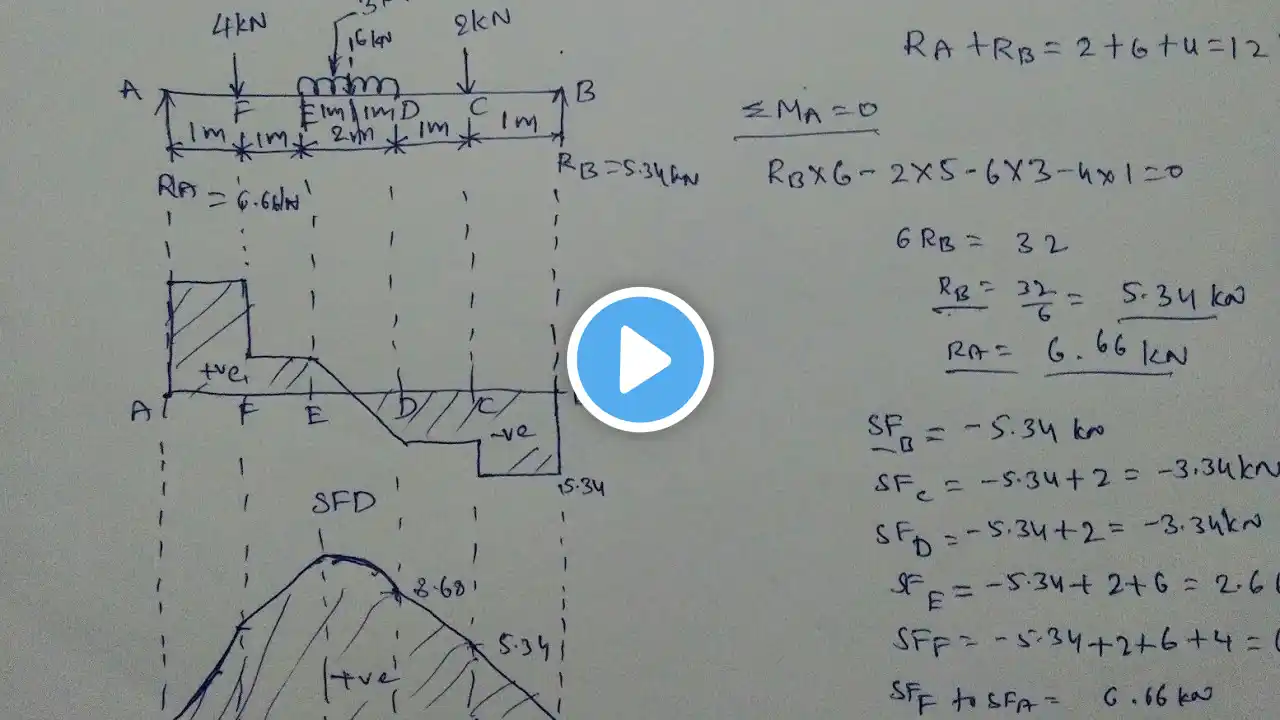 4kN
2kN
6kN
A
B
F
E
1m
1m
D
C
1m
1m
2m
1m
1m
RA = 6.66kN
RB = 5.34kN
+ve
-ve
A
F
E
D
C
5.34
SFD
8.68
5.34
+ve
RA + RB = 2+6+4 = 12
ΣMA = 0
RB×6 - 2×5 - 6×3 - 4×1 = 0
6RB = 32
RB = 32/6 = 5.34 kN
RA = 6.66 kN
SFB = -5.34 kN
SFC = -5.34+2 = -3.34kN
SFD = -5.34+2 = -3.34kN
SFE = -5.34+2+6 = 2.6
SFF = -5.34+2+6+4 =
SFF to SFA = 6.66 kN